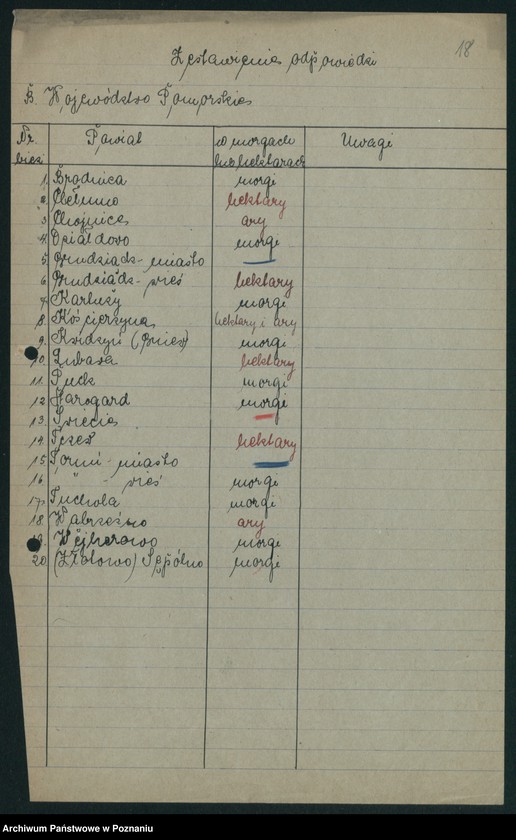 18
Zestawienie odpowiedzi
B. Województwo Pomorskie
Nr. bież. Powiat w morgach lub hektarach Uwagi
1. Brodnica morgi
2. Chełmno hektary
3. Chojnice ary
4. Działdowo morgi
5. Grudziądz - miasto
6. Grudziądz - wieś hektary
7. Kartuzy morgi
8. Kościerzyna hektary i ary
9. (Gniew) morgi
10. Lubawa hektary
11. Puck morgi
12. Starogard morgi
13. Świecie
14. Tczew hektary
15. Toruń - miasto
16. " - wieś morgi
17. Tuchola morgi
18. Wąbrzeźno ary
19. Wejherowo morgi
20. Sępólno morgi
Archiwum Państwowe w Poznaniu